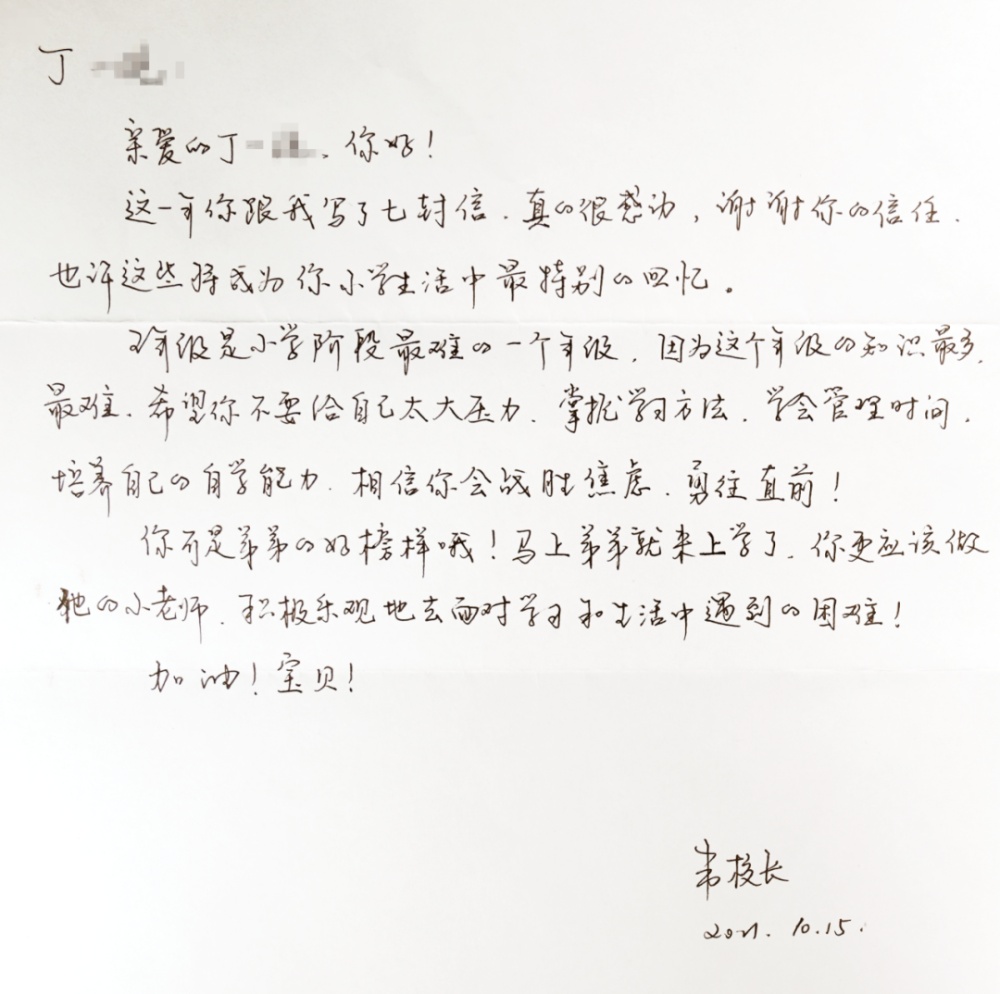 丁一
亲爱的丁一、你好！
这一年你跟我写了七封信，真的很感动，谢谢你的信任，
也许这些将成为你小学生活中最特别的回忆。
五年级是小学阶段最难的一个年级，因为这个年级的知识最多，
最难，希望你不要给自己太大压力，掌握学习方法，学会管理时间，
培养自己的自学能力，相信你会战胜焦虑，勇往直前！
你可是弟弟的好榜样哦！马上弟弟就来上学了，你更应该做
他的小老师，积极乐观地去面对学习和生活中遇到的困难！
加油！宝贝！
韦校长
2021.10.15.